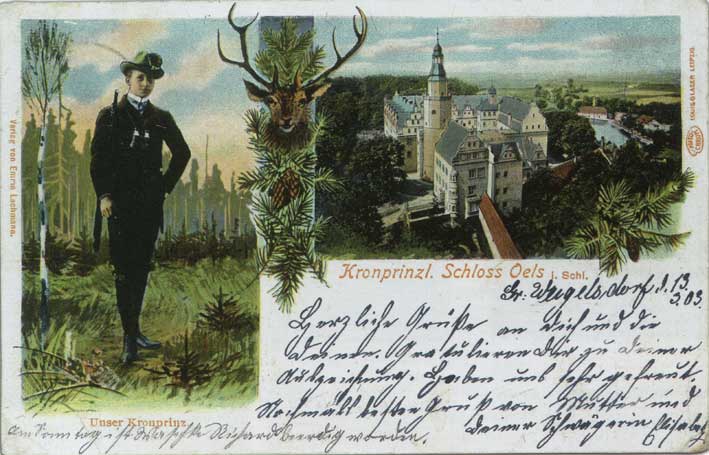 Verlag von Emma Lachmann.
LOUIS GLASER LEIPZIG.
Kronprinzl. Schloss Oels i. Schl.
Gr. Weigelsdorf d. 13.
3.03.
Herzliche Grüße an dich und die
deinen. Gratulieren dir zu deiner
Auszeichnung. Haben uns sehr gefreut.
Nochmals besten Gruß von Mutter und
deiner Schwägerin Elisabet
Unser Kronprinz.
Am Sonntag ist Richard beerdig worden.